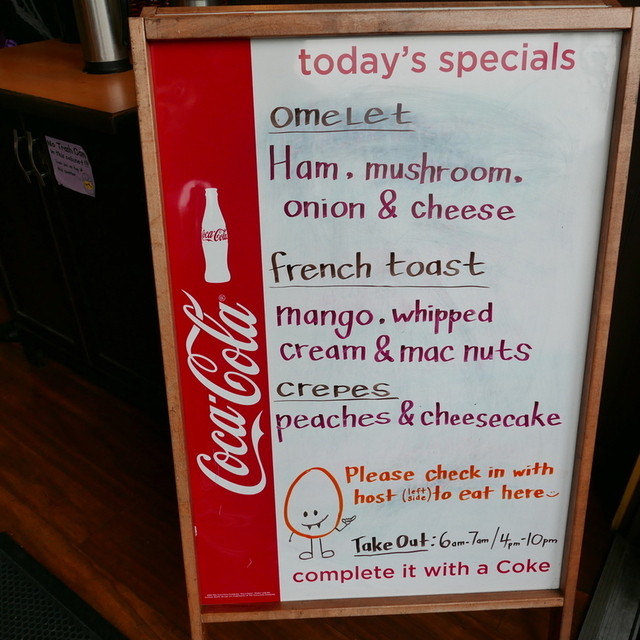 today's specials
omelet
Ham, mushroom,
onion & cheese
french toast
mango, whipped
cream & mac nuts
crepes
peaches & cheesecake
Please check in with
host (left side) to eat here
Take Out: 6am-7am/4pm-10pm
complete it with a Coke
Coca-Cola
Coca-Cola
No Trash Can